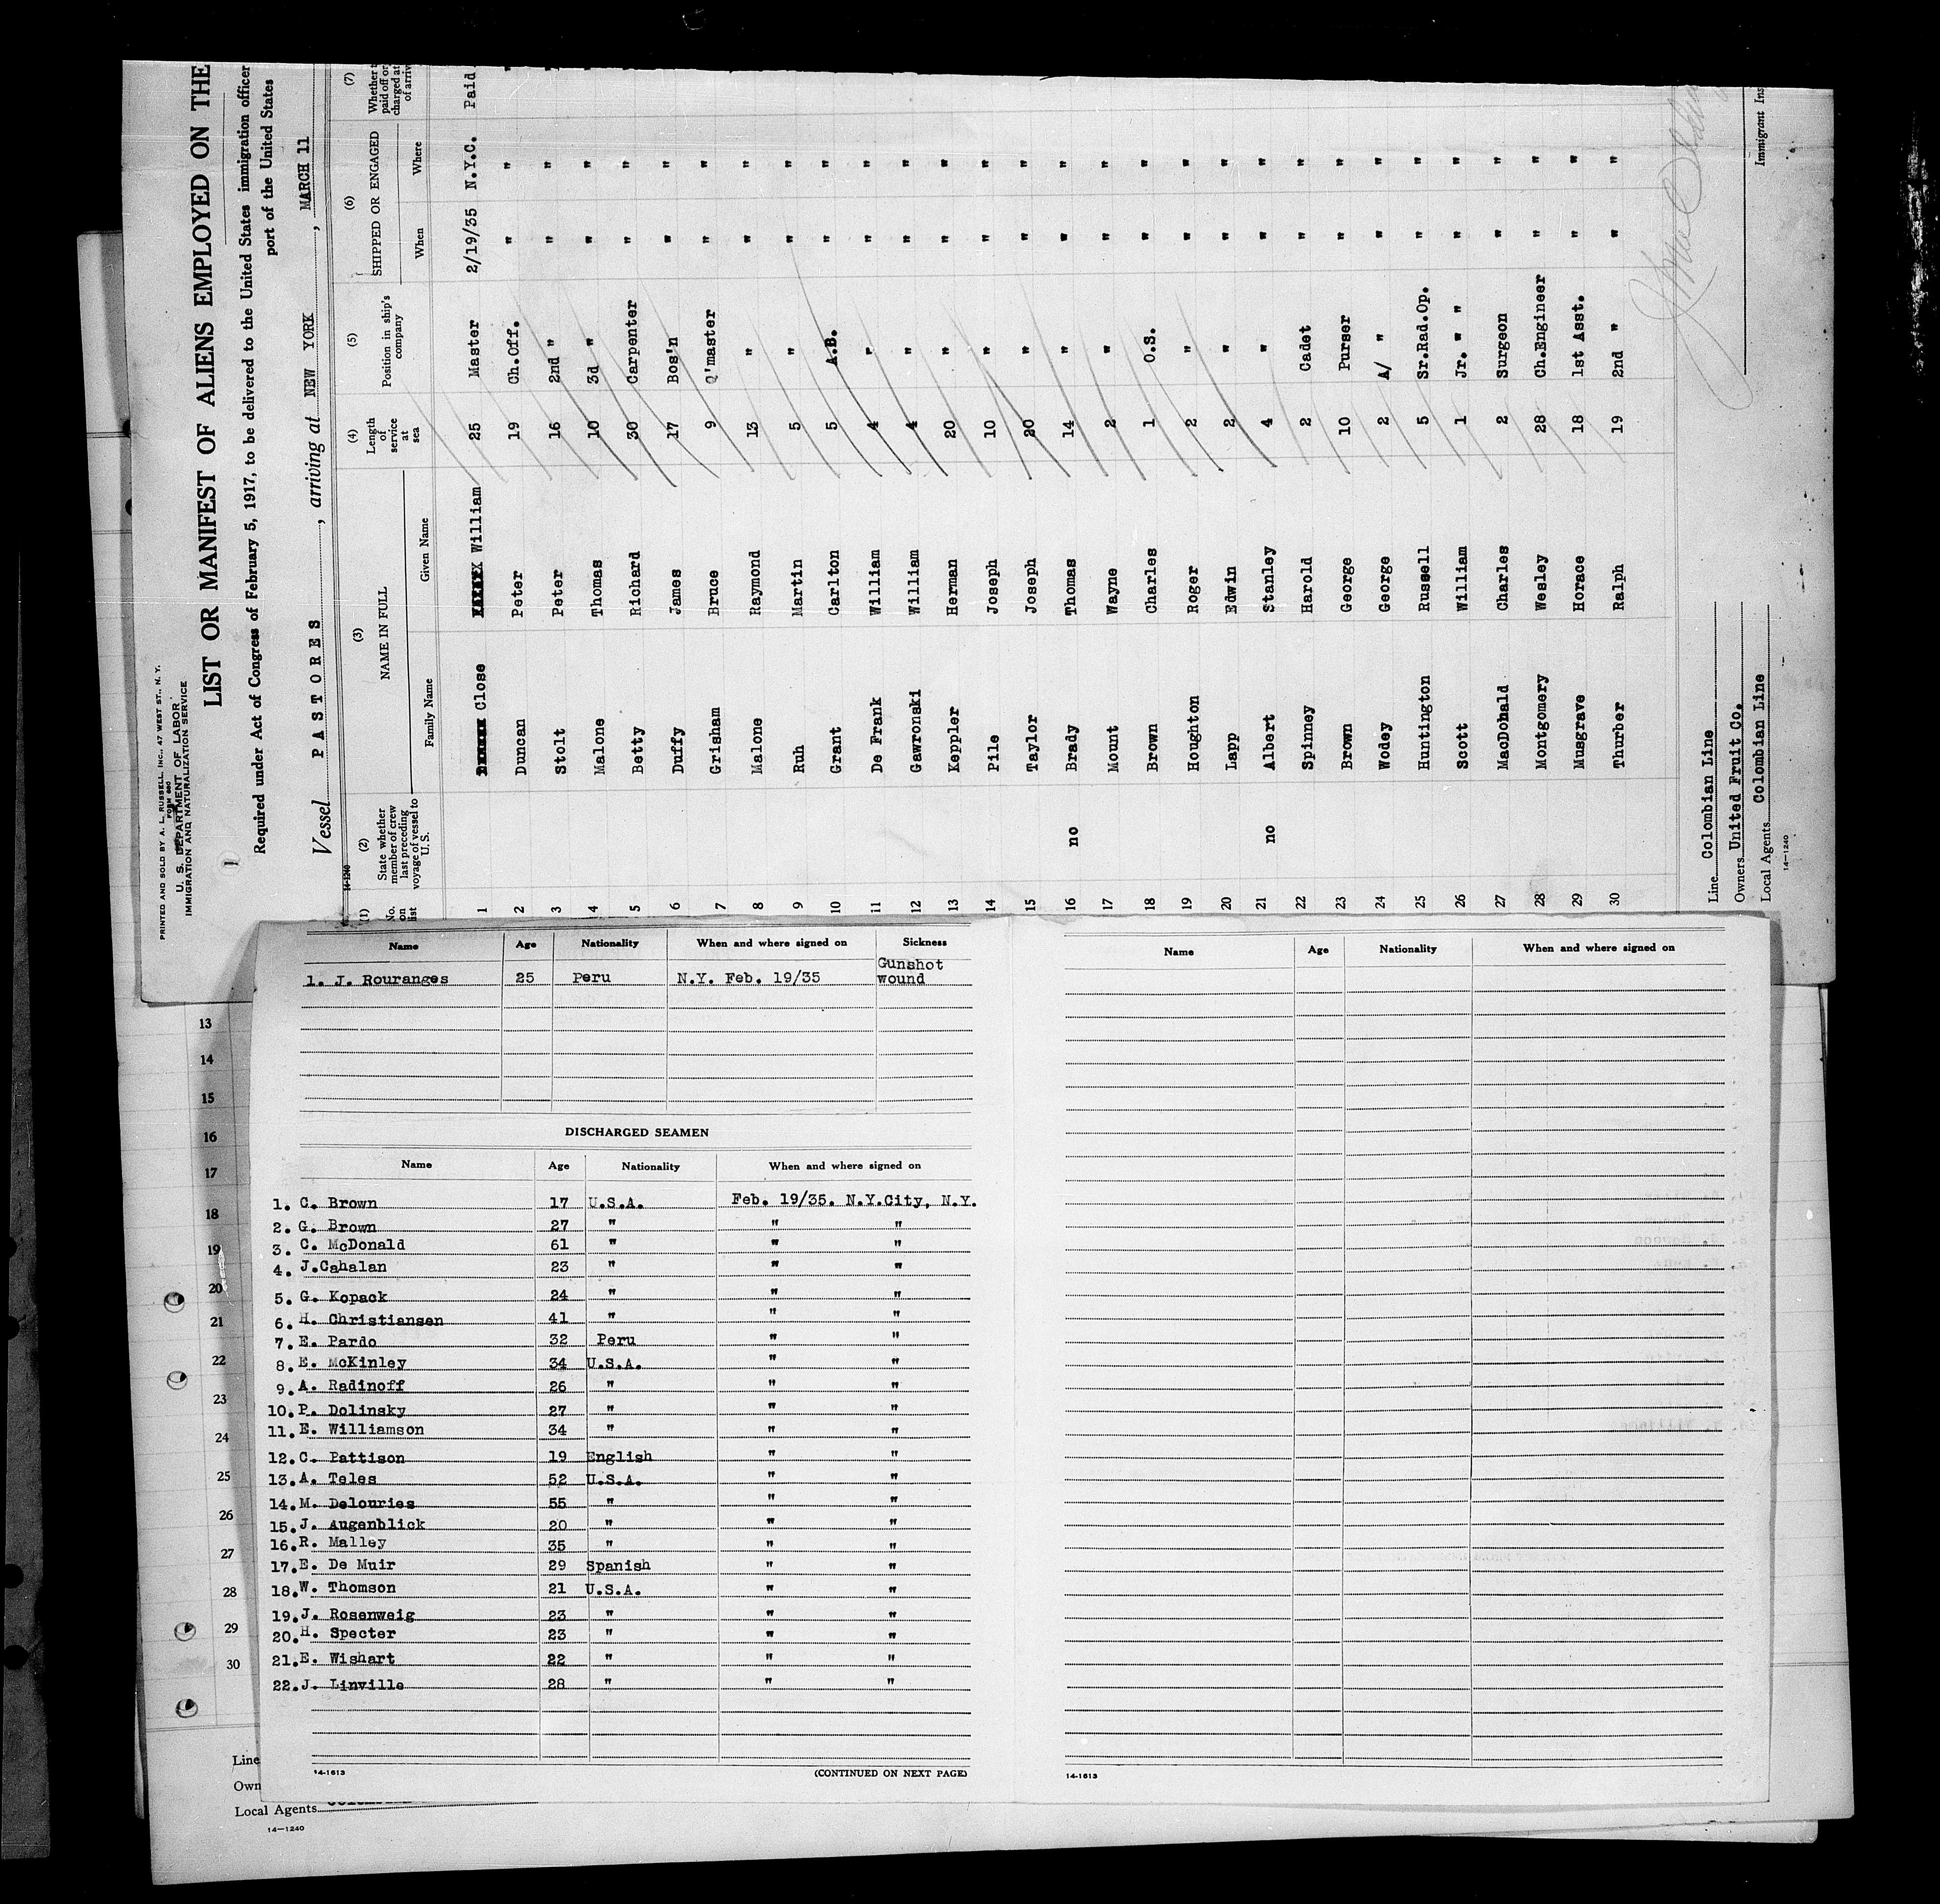 PRINTED AND SOLD BY A. L. RUSSELL, INC., 47 WEST ST., N. Y.
FORM 680
U. S. DEPARTMENT OF LABOR
IMMIGRATION AND NATURALIZATION SERVICE
1
LIST OR MANIFEST OF ALIENS EMPLOYED ON THE
Required under Act of Congress of February 5, 1917, to be delivered to the United States immigration officer
port of the United States
Vessel PASTORES, arriving at NEW YORK, MARCH 11
14-1240
(1) (2) (3) (4) (5) (6) (7)
No. on list State whether member of crew last preceding voyage of vessel to U. S. NAME IN FULL Family Name Given Name Length of service at sea Position in ship's company SHIPPED OR ENGAGED When Where Whether paid off or charged at of arriv
1 Close William 25 Master 2/19/35 N.Y.C. Paid
2 Duncan Peter 19 Ch.Off. " " "
3 Stolt Peter 16 2nd " " " "
4 Malone Thomas 10 3d " " " "
5 Betty Richard 30 Carpenter " " "
6 Duffy James 17 Bos'n " "
7 Grisham Bruce 9 Q'master " "
8 Malone Raymond 13 " " "
9 Ruh Martin 5 " " "
10 Grant Carlton 5 A.B. " "
11 De Frank William 4 " " "
12 Gawronski William 4 " " "
13 Keppler Herman 20 " " "
14 Pile Joseph 10 " " "
15 Taylor Joseph 20 " " "
16 no Brady Thomas 14 " " "
17 Mount Wayne 2 " " "
18 Brown Charles 1 O.S. " "
19 Houghton Roger 2 " " "
20 Lapp Edwin 2 " " "
21 no Albert Stanley 4 " " "
22 Spinney Harold 2 Cadet " "
23 Brown George 10 Purser " "
24 Wodey George 2 A/ " " "
25 Huntington Russell 5 Sr.Rad.Op. " "
26 Scott William 1 Jr. " " " "
27 MacDonald Charles 2 Surgeon " "
28 Montgomery Wesley 28 Ch.Engineer " "
29 Musgrave Horace 18 1st Asst. " "
30 Thurber Ralph 19 2nd " " "
Line Colombian Line
Owners United Fruit Co.
Local Agents Colombian Line
14-1240
Immigrant Ins
Name Age Nationality When and where signed on Sickness
1. J. Rouranges 25 Peru N.Y. Feb. 19/35 Gunshot wound
DISCHARGED SEAMEN
Name Age Nationality When and where signed on
1. C. Brown 17 U.S.A. Feb. 19/35. N.Y.City, N.Y.
2. G. Brown 27 " " "
3. C. McDonald 61 " " "
4. J.Cahalan 23 " " "
5. G. Kopack 24 " " "
6. H. Christiansen 41 " " "
7. E. Pardo 32 Peru " "
8. E. McKinley 34 U.S.A. " "
9. A. Radinoff 26 " " "
10. P. Dolinsky 27 " " "
11. E. Williamson 34 " " "
12. C. Pattison 19 English " "
13. A. Teles 52 U.S.A. " "
14. M. Delouries 55 " " "
15. J. Augenblick 20 " " "
16. R. Malley 35 " " "
17. E. De Muir 29 Spanish " "
18. W. Thomson 21 U.S.A. " "
19. J. Rosenweig 23 " " "
20. H. Specter 23 " " "
21. E. Wishart 22 " " "
22. J. Linville 28 " " "
14-1613
(CONTINUED ON NEXT PAGE)
Name Age Nationality When and where signed on
14-1613
13
14
15
16
17
18
19
20
21
22
23
24
25
26
27
28
29
30
Line
Own
Local Agents
14-1240